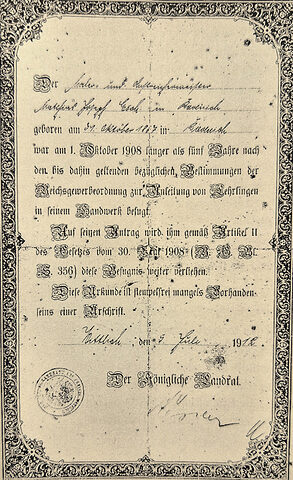 Der Maler- und
Matthias Joseph Esch in
geboren am 31 Oktober in
war am 1. Oktober 1908 länger als fünf Jahre nach
den bis dahin geltenden bezüglichen Bestimmungen der
Reichsgewerbeordnung zur Anleitung von Lehrlingen
in seinem Handwerk befugt.
Auf seinen Antrag wird ihm gemäß Artikel II
des Gesetzes vom 30. Mai 1908 (R. G. Bl.
S. 356) diese Befugnis weiter verliehen.
Diese Urkunde ist stempelfrei mangels Vorhanden-
seins einer Urschrift.
Wittlich, den 5 Juli 1912
Der Königliche Landrat.